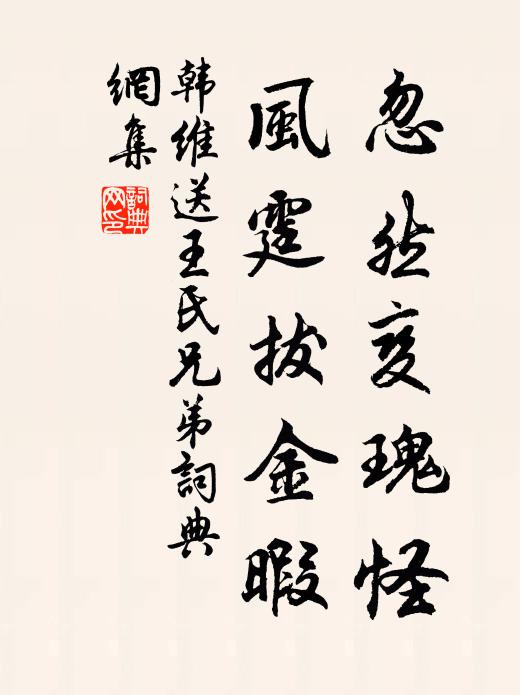 忽然变瑰怪
風霆拔金暇
韩維送王氏兄弟詞典
網集
詞典網印